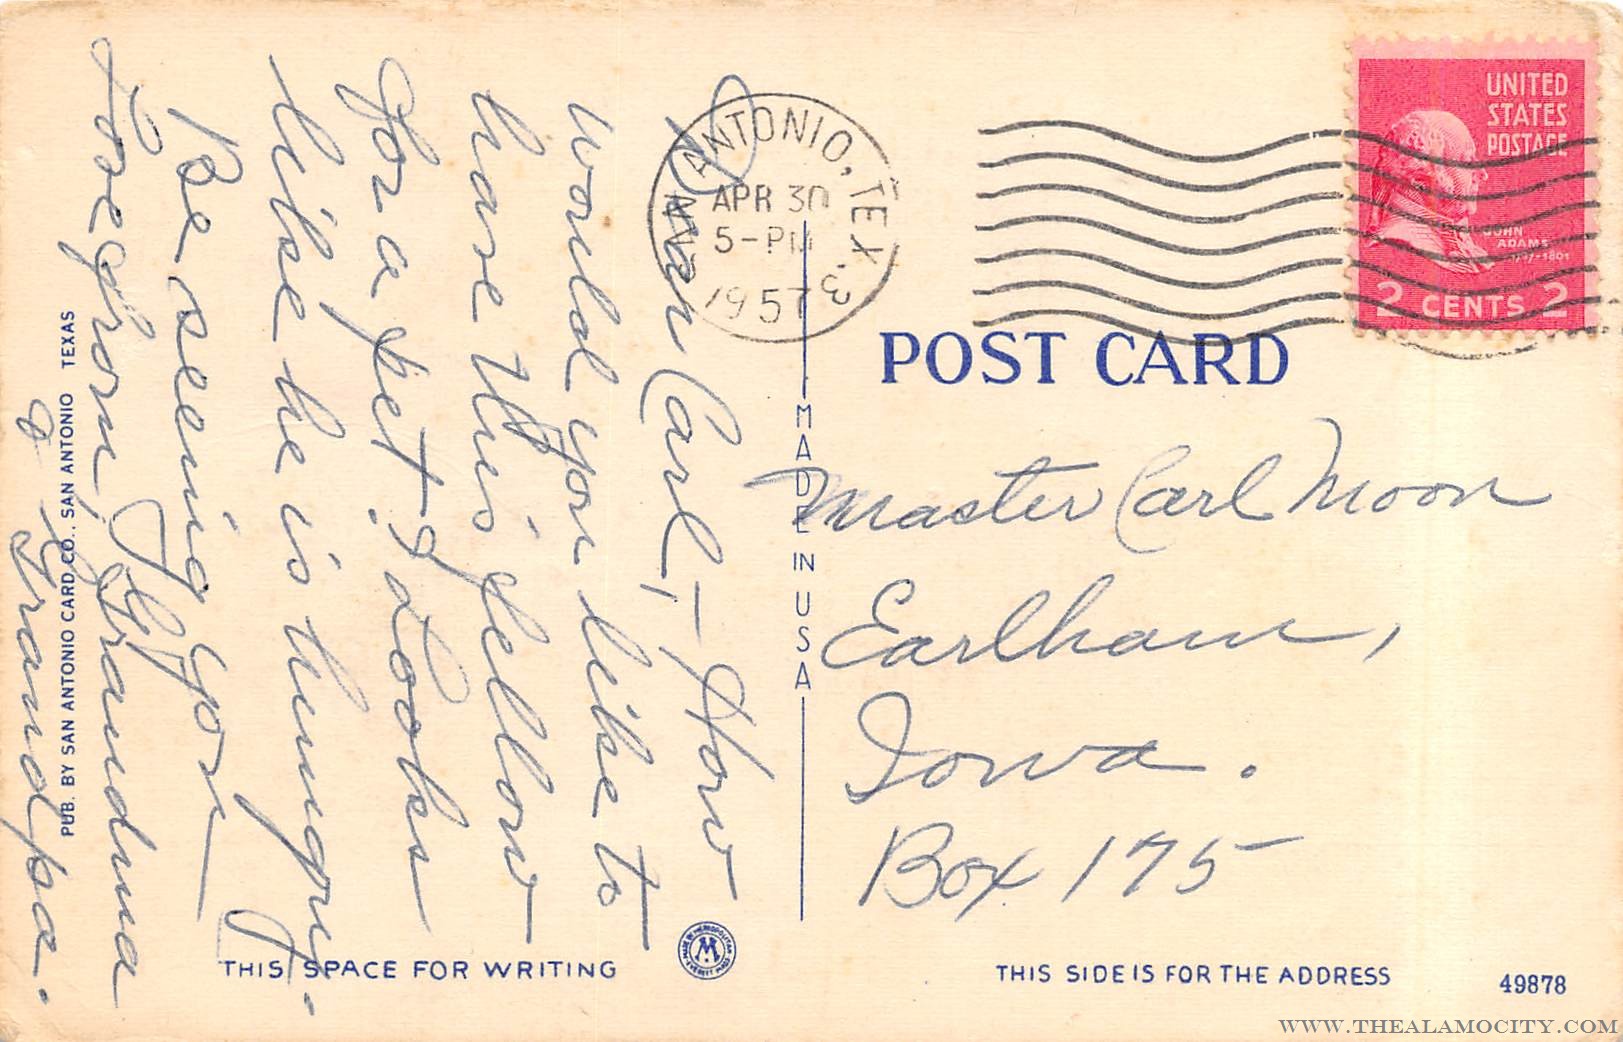 Dear Carl, - How
would you like to
have this fellow
for a pet? Looks
like he is hungry.
Be seeing you
Grandma
& Grandpa.
PUB. BY SAN ANTONIO CARD CO., SAN ANTONIO TEXAS
THIS SPACE FOR WRITING
MADE IN USA
SAN ANTONIO, TEX. 3
APR 30
5-PM
1957
UNITED
STATES
POSTAGE
JOHN
ADAMS
1797-1801
2 CENTS 2
POST CARD
Master Carl Moon
Earlham,
Iowa.
Box 175
MADE BY METROPOLITAN
M
EVERETT MASS
THIS SIDE IS FOR THE ADDRESS
49878
WWW.THEALAMOCITY.COM